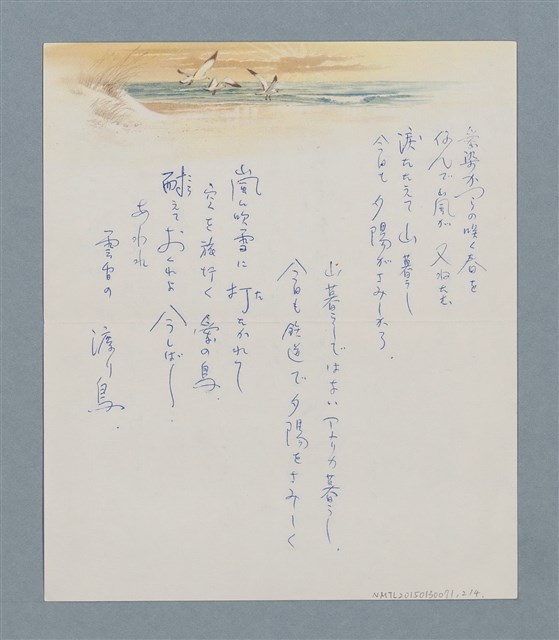 咲く春を
何んで嵐が 又ねたむ
涙たたえて 山暮し
今日も夕陽がさみしかろ、
山暮しではないアメリカ暮し、
今日も鉄道で夕陽をさみしく
嵐吹雪に 打たかれて
空を旅行く 愛の鳥、
耐えておくれよ 今しばし、
あわれ
雲白の 渡り鳥、
NMTL20150130071, 2/4.